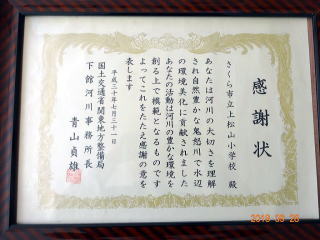 感謝状
さくら市立上松山小学校 殿
あなたは河川の大切さを理解
され自然豊かな鬼怒川で水辺
の環境美化に貢献されました
あなたの活動は河川の豊かな環境を
創る上で模範となるものです
よってこれをたたえ感謝の意を
表します
平成三十年七月三十一日
国土交通省関東地方整備局
下館河川事務所長
青山貞雄